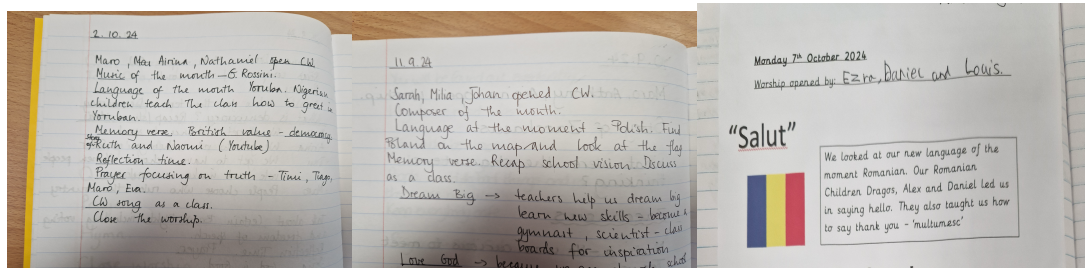 2.10.24
Maro, Airina, Nathaniel open CW.
Music of the month - G. Rossini.
Language of the month Yoruban. Nigerian
children teach The class how to greet in
Yoruban.
Memory verse. British value - democracy
story of Ruth and Naomi (Youtube)
Reflection time.
Prayer focusing on truth - Timi, Tiago,
Maro, Eva.
CW song as a class.
Close the worship.
11.9.24
Sarah, Milia, Johan opened CW.
Composer of the month.
Language at the moment - Polish. Find
Poland on the map and look at the flag
Memory verse. Recap school vision. Dscuss
as a class.
Dream Big → teachers help us dream big
learn new skills - become a
gymnast, scientist - class
boards for inspiration
Love God →
Monday 7th October 2024
Worship opened by: Ezra, Daniel and Louis.
“Salut”
We looked at our new language of the
moment Romanian. Our Romanian
Children Dragos, Alex and Daniel led us
in saying hello. They also taught us how
to say thank you - ‘multumesc’